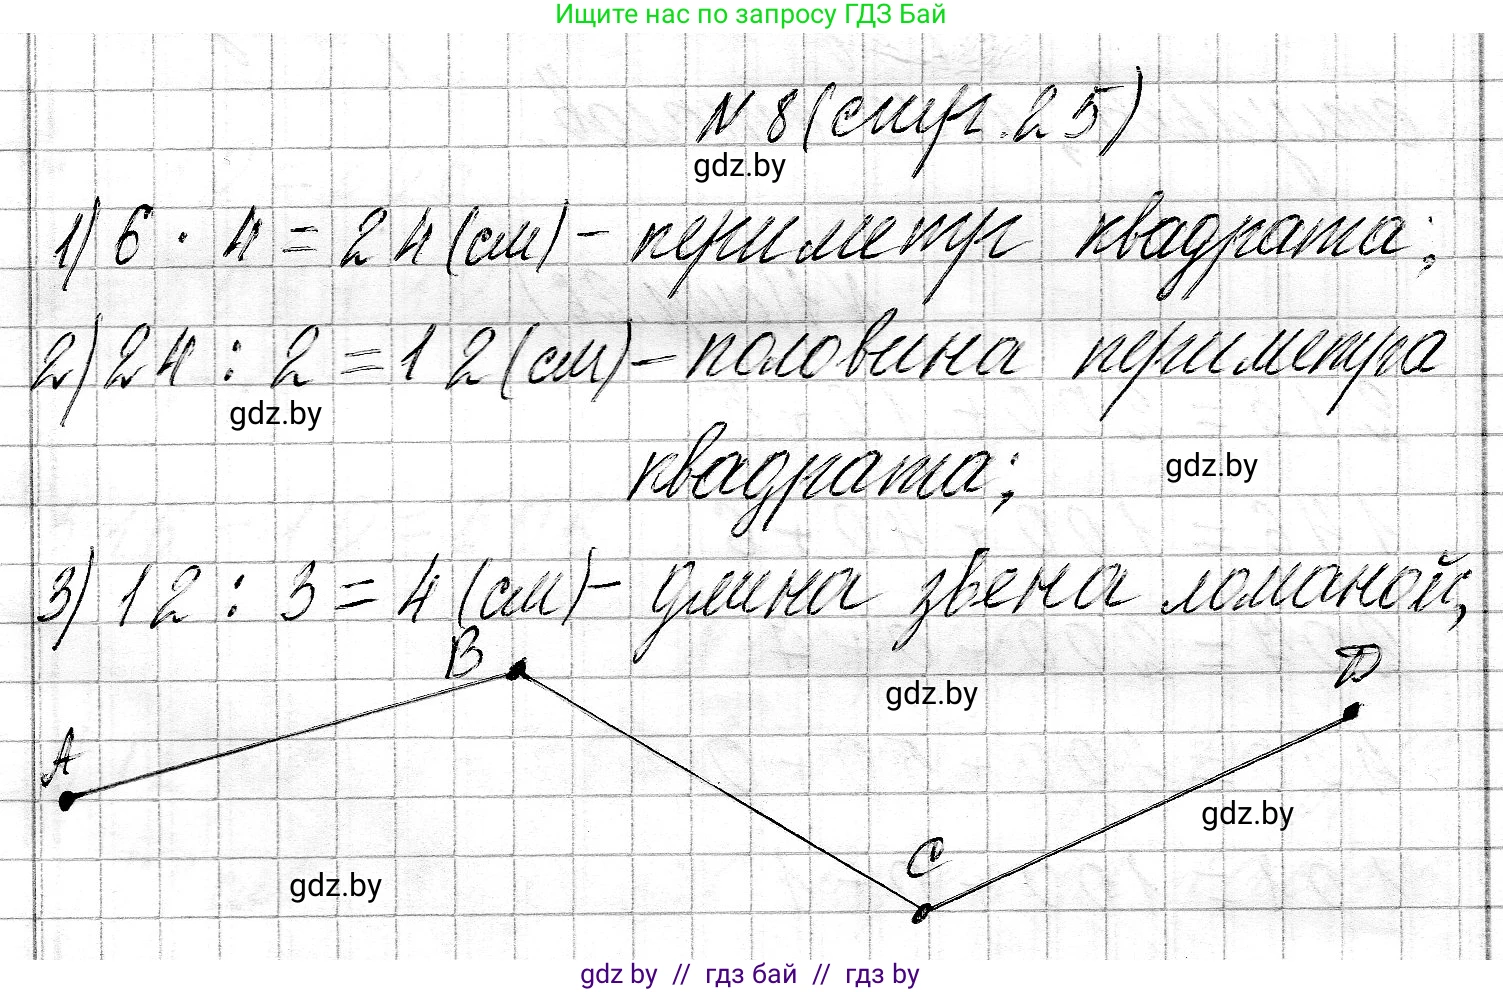 Ищите нас по запросу ГДЗ Бай
N 8 (стр. 25)
gdz.by
1) 6 · 4 = 24 (см) - периметр квадрата;
2) 24 : 2 = 12 (см) - половина периметра
gdz.by
квадрата;
gdz.by
3) 12 : 3 = 4 (см) - длина звена ломаной;
B
D
gdz.by
A
gdz.by
C
gdz.by
gdz by // гдз бай // гдз by